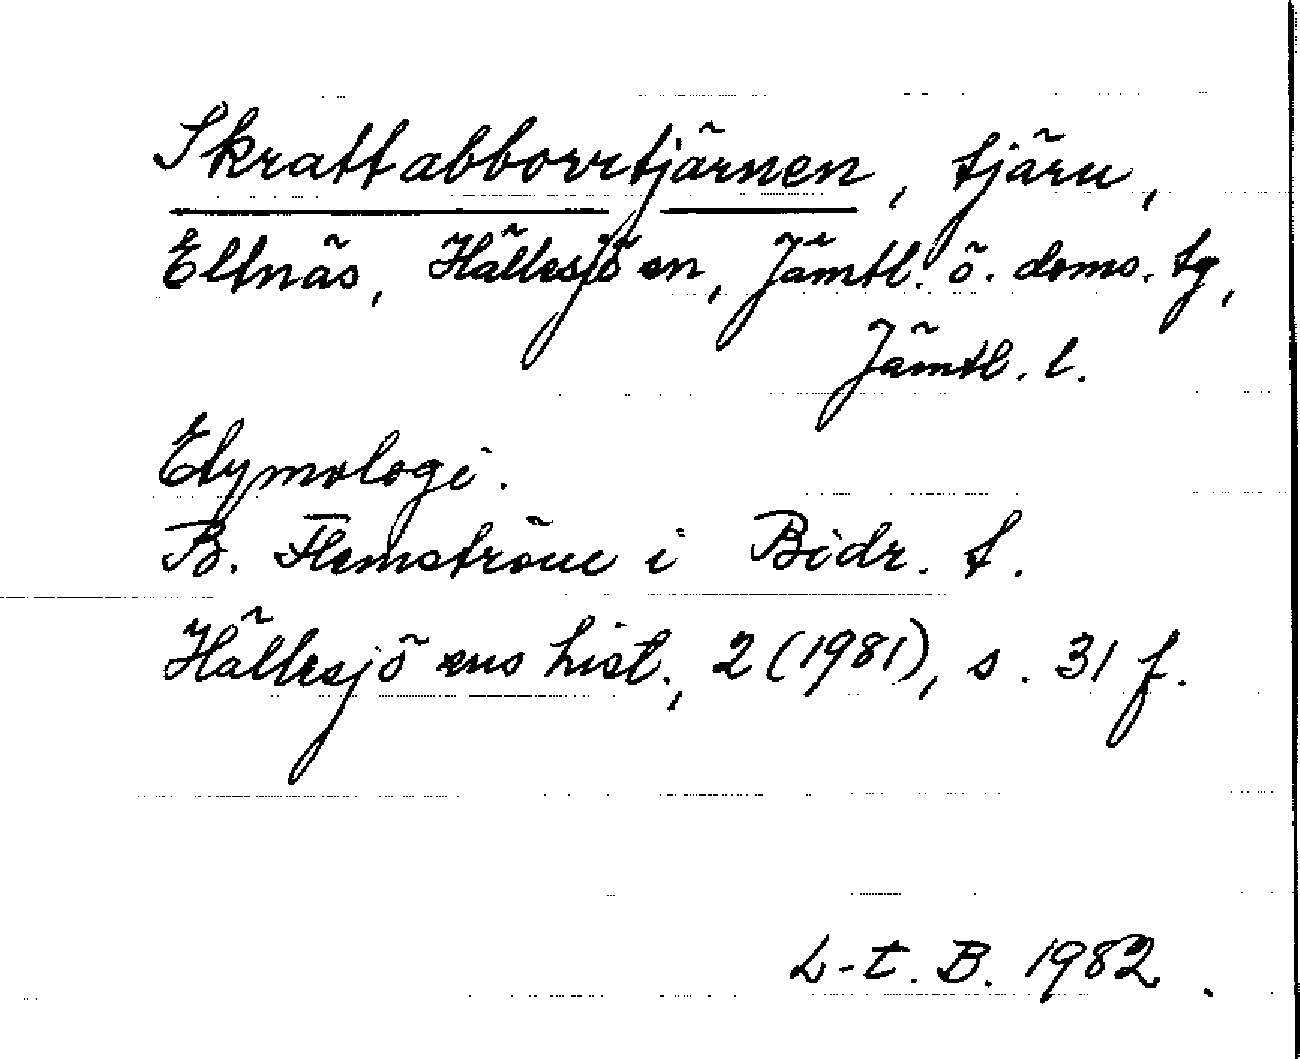 Skrattabborrtjärnen, tjärn,
Eltnäs, Hällesjö sn, Jämtl. ö. doms. tg,
Jämtl. l.
Etymologi.
B. Flemström i Bidr. t.
Hällesjö sns hist., 2 (1981), s. 31 f.
L-t. B. 1982.